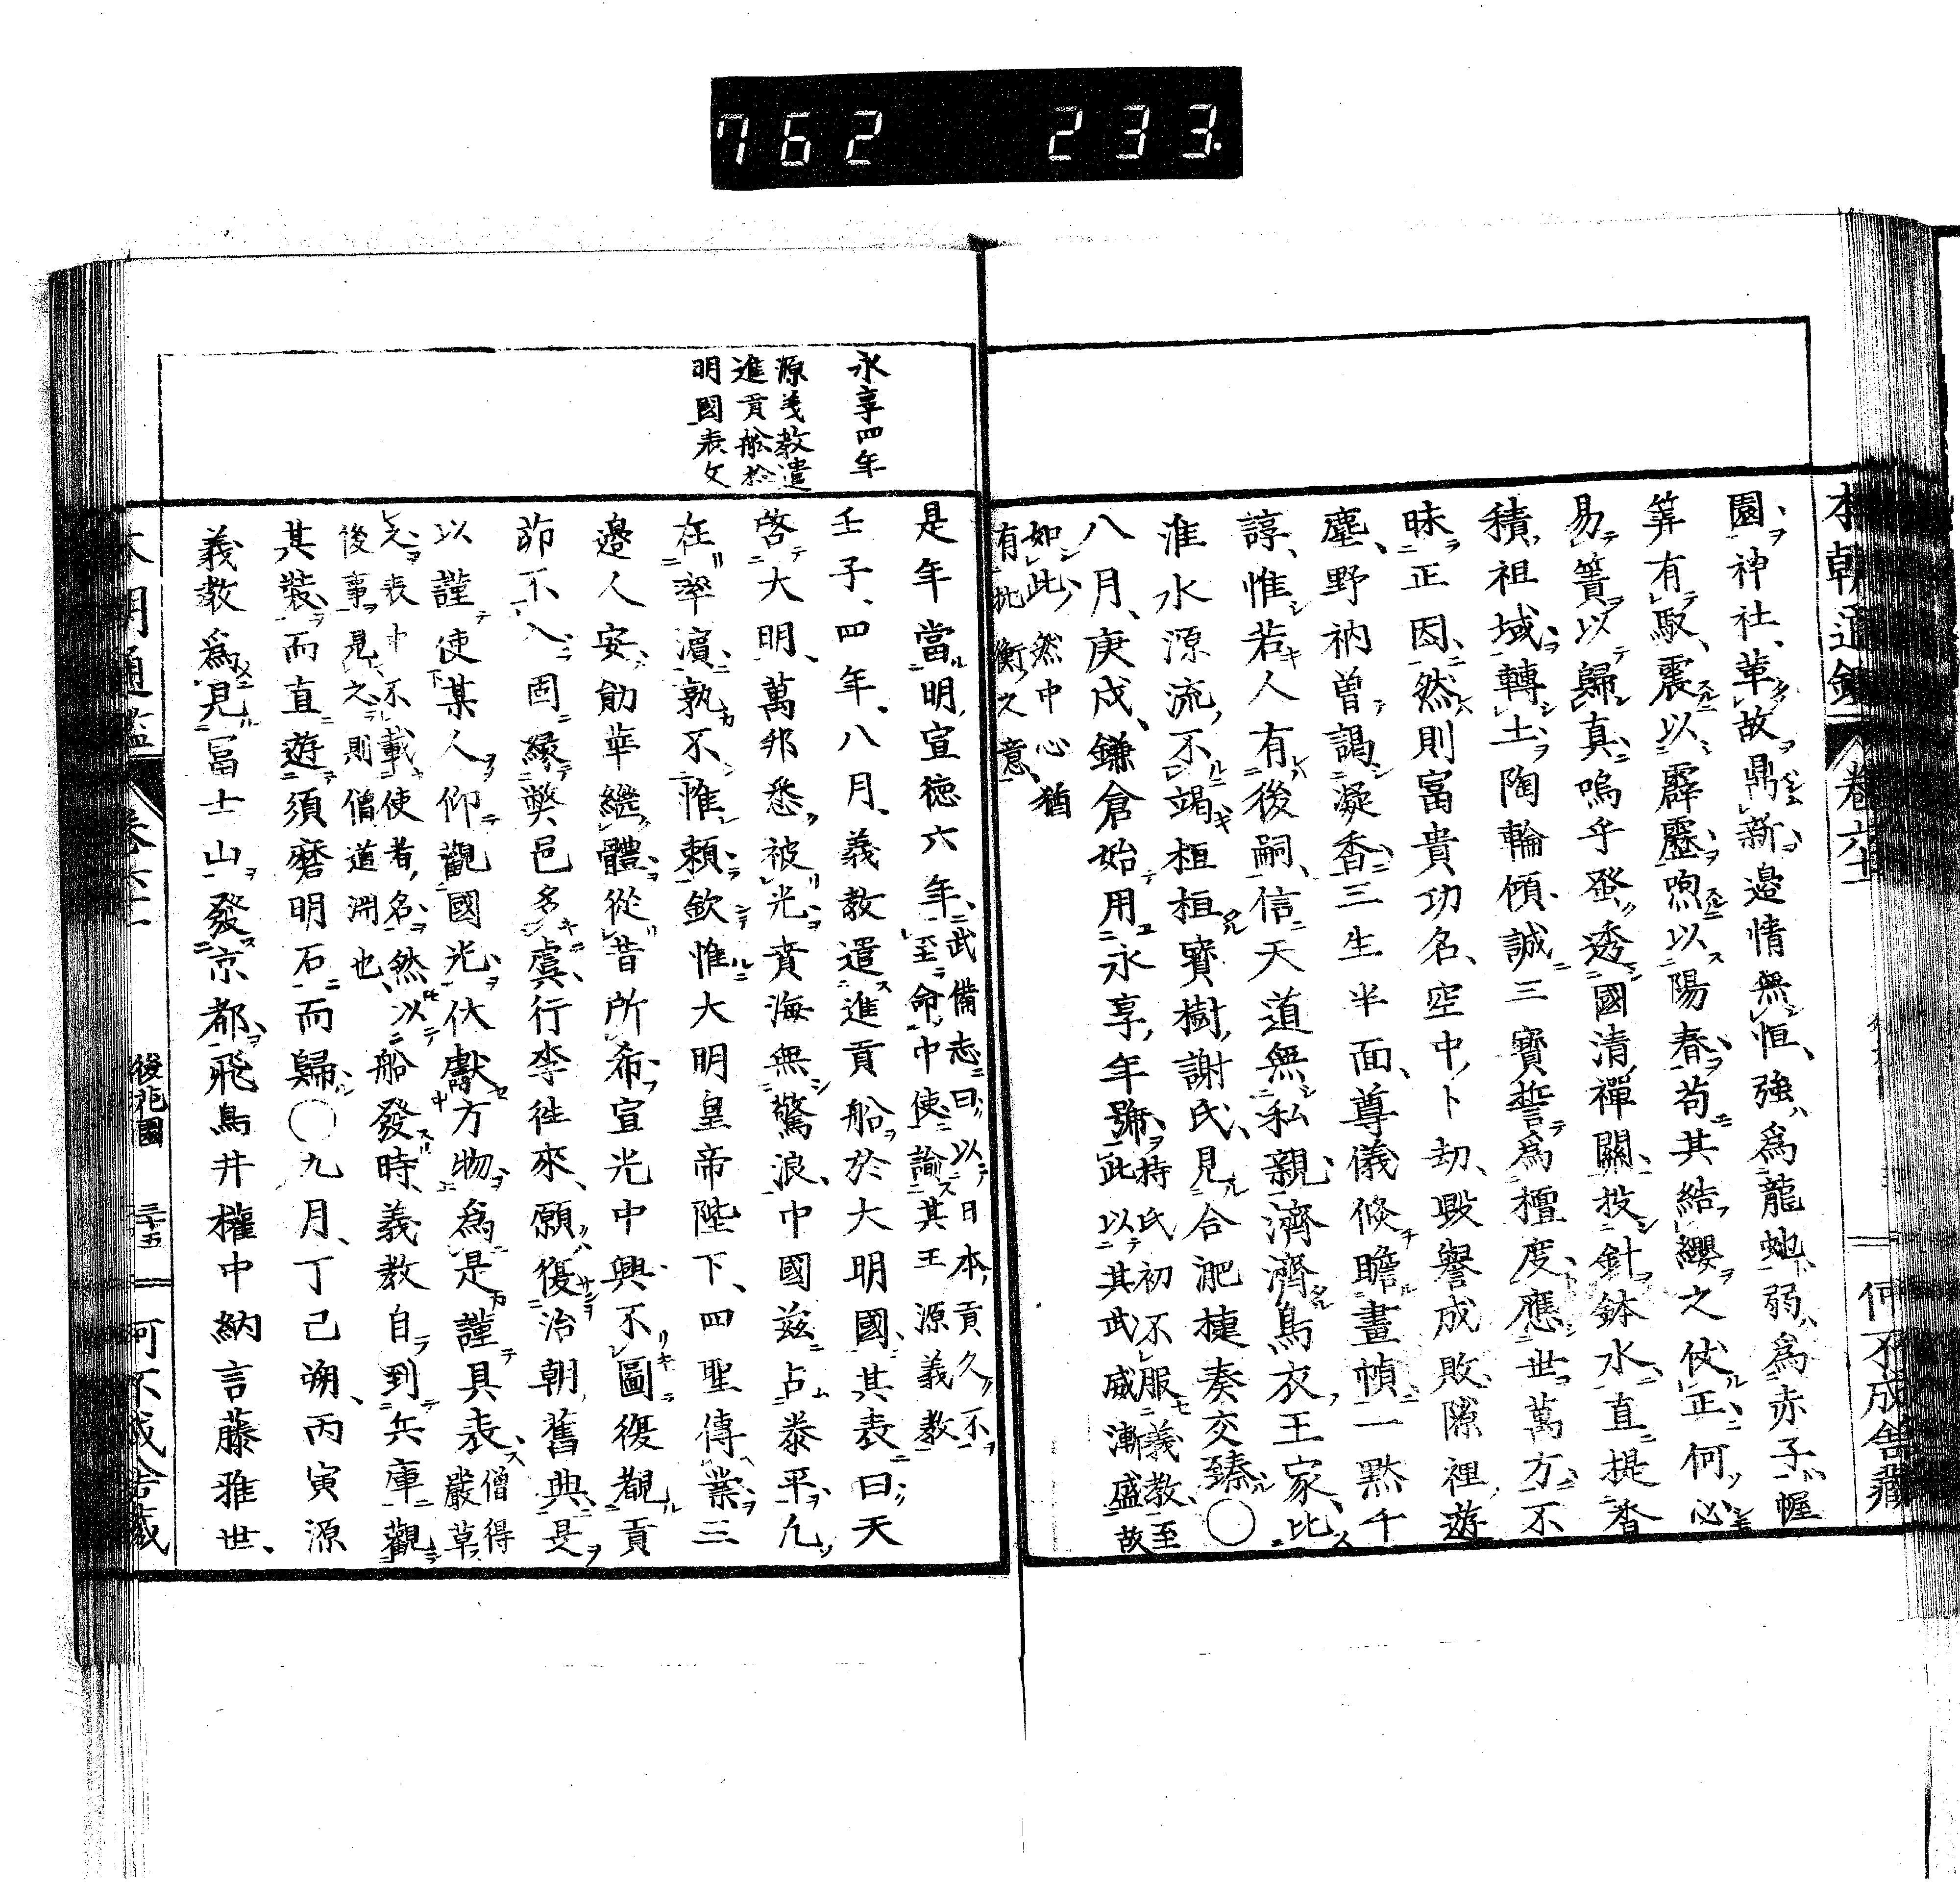 762 233.
本朝通鑑 卷六十 何不成舍藏
園神社、革故鼎新、邊情無恒、強爲龍虵、弱爲赤子、幄
筭有馭、震以霹靂、喣以陽春、苟其結纓之仗正、何必
易簀以歸眞、嗚乎發透國清禪關、投針鉢水、直提香
積、祖域轉土、陶輪傾誠、三寶誓爲檀度、應世萬方、不
昧正因、然則富貴功名、空中卜刧、毀譽成敗、隙裡遊
塵、野衲曽謁凝香、三生半面、尊儀倏瞻畫幀、一點千
諄、惟若人有後嗣、信天道無私親、濟濟烏衣、王家比
淮水源流、不竭桓桓寳樹、謝氏見合肥捷奏交臻〇
八月、庚戌、鎌倉始用永享年號、持氏初不服義教、至此以其武威漸盛、故
如此、然中心猶有批衡之意、
永享四年
源義教遣
進貢舩於
明國表文
是年當明宣德六年、武備志曰、以日本貢久不至、命中使諭其王源義教
壬子、四年、八月、義教遣進貢船於大明國、其表曰、天
啓大明、萬邦悉被光賁、海無驚浪、中國茲占泰平、凢
在率濵、孰不惟頼、欽惟大明皇帝陛下、四聖傳業、三
邉人安、勛華繼體、從昔所希、宣光中興、不圖復覩、貢
茆不入、固緣弊邑多虞、行李徃來、願復治朝舊典、是
以謹使某人、仰觀國光、伏獻方物、爲是謹具表、僧得嚴草
之、表中不載使者名、然以後事見之、則僧道淵也、船發時、義教自到兵庫觀
其裝、而直遊須磨明石而歸〇九月、丁己朔、丙寅、源
義教爲見冨士山發京都、飛鳥井權中納言藤雅世、
本朝通鑑 卷六十 後花園 三十五 何不成舍藏